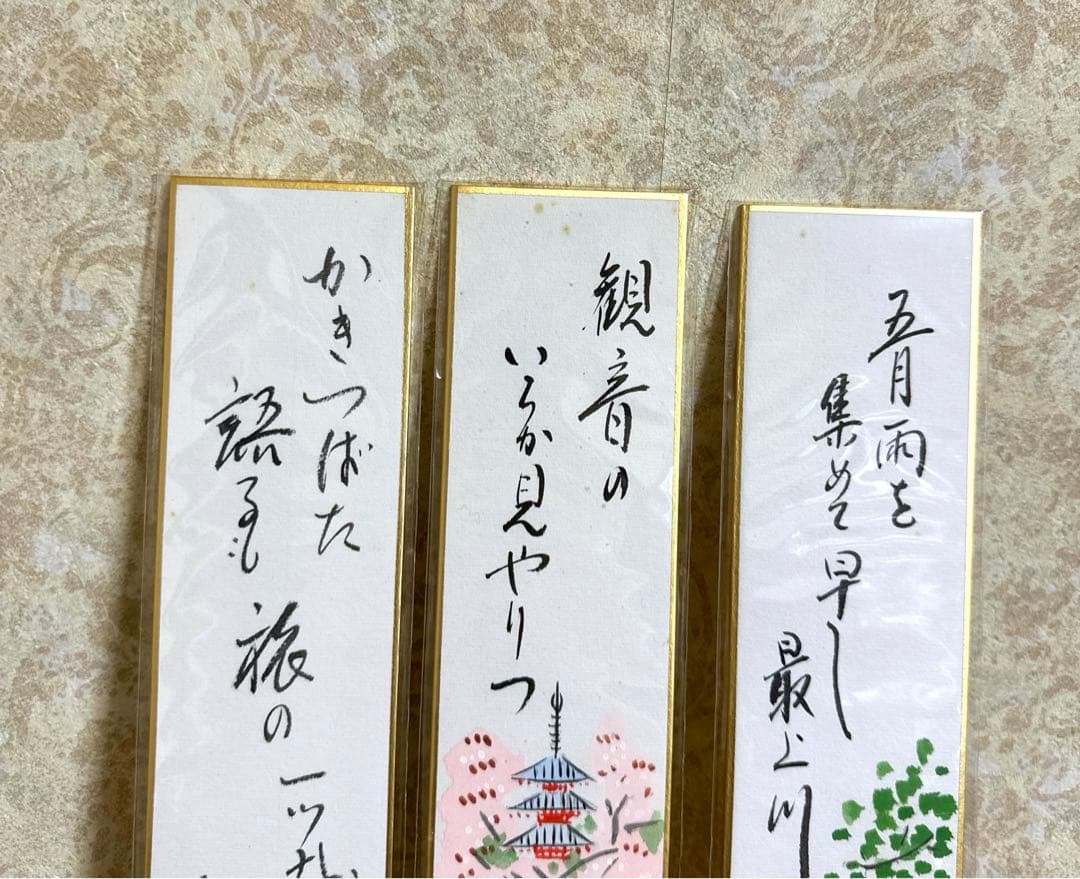 五月雨を
集めて早し
最上川
観音の
いらか見やりつ
かきつばた
語るも旅の一ツ